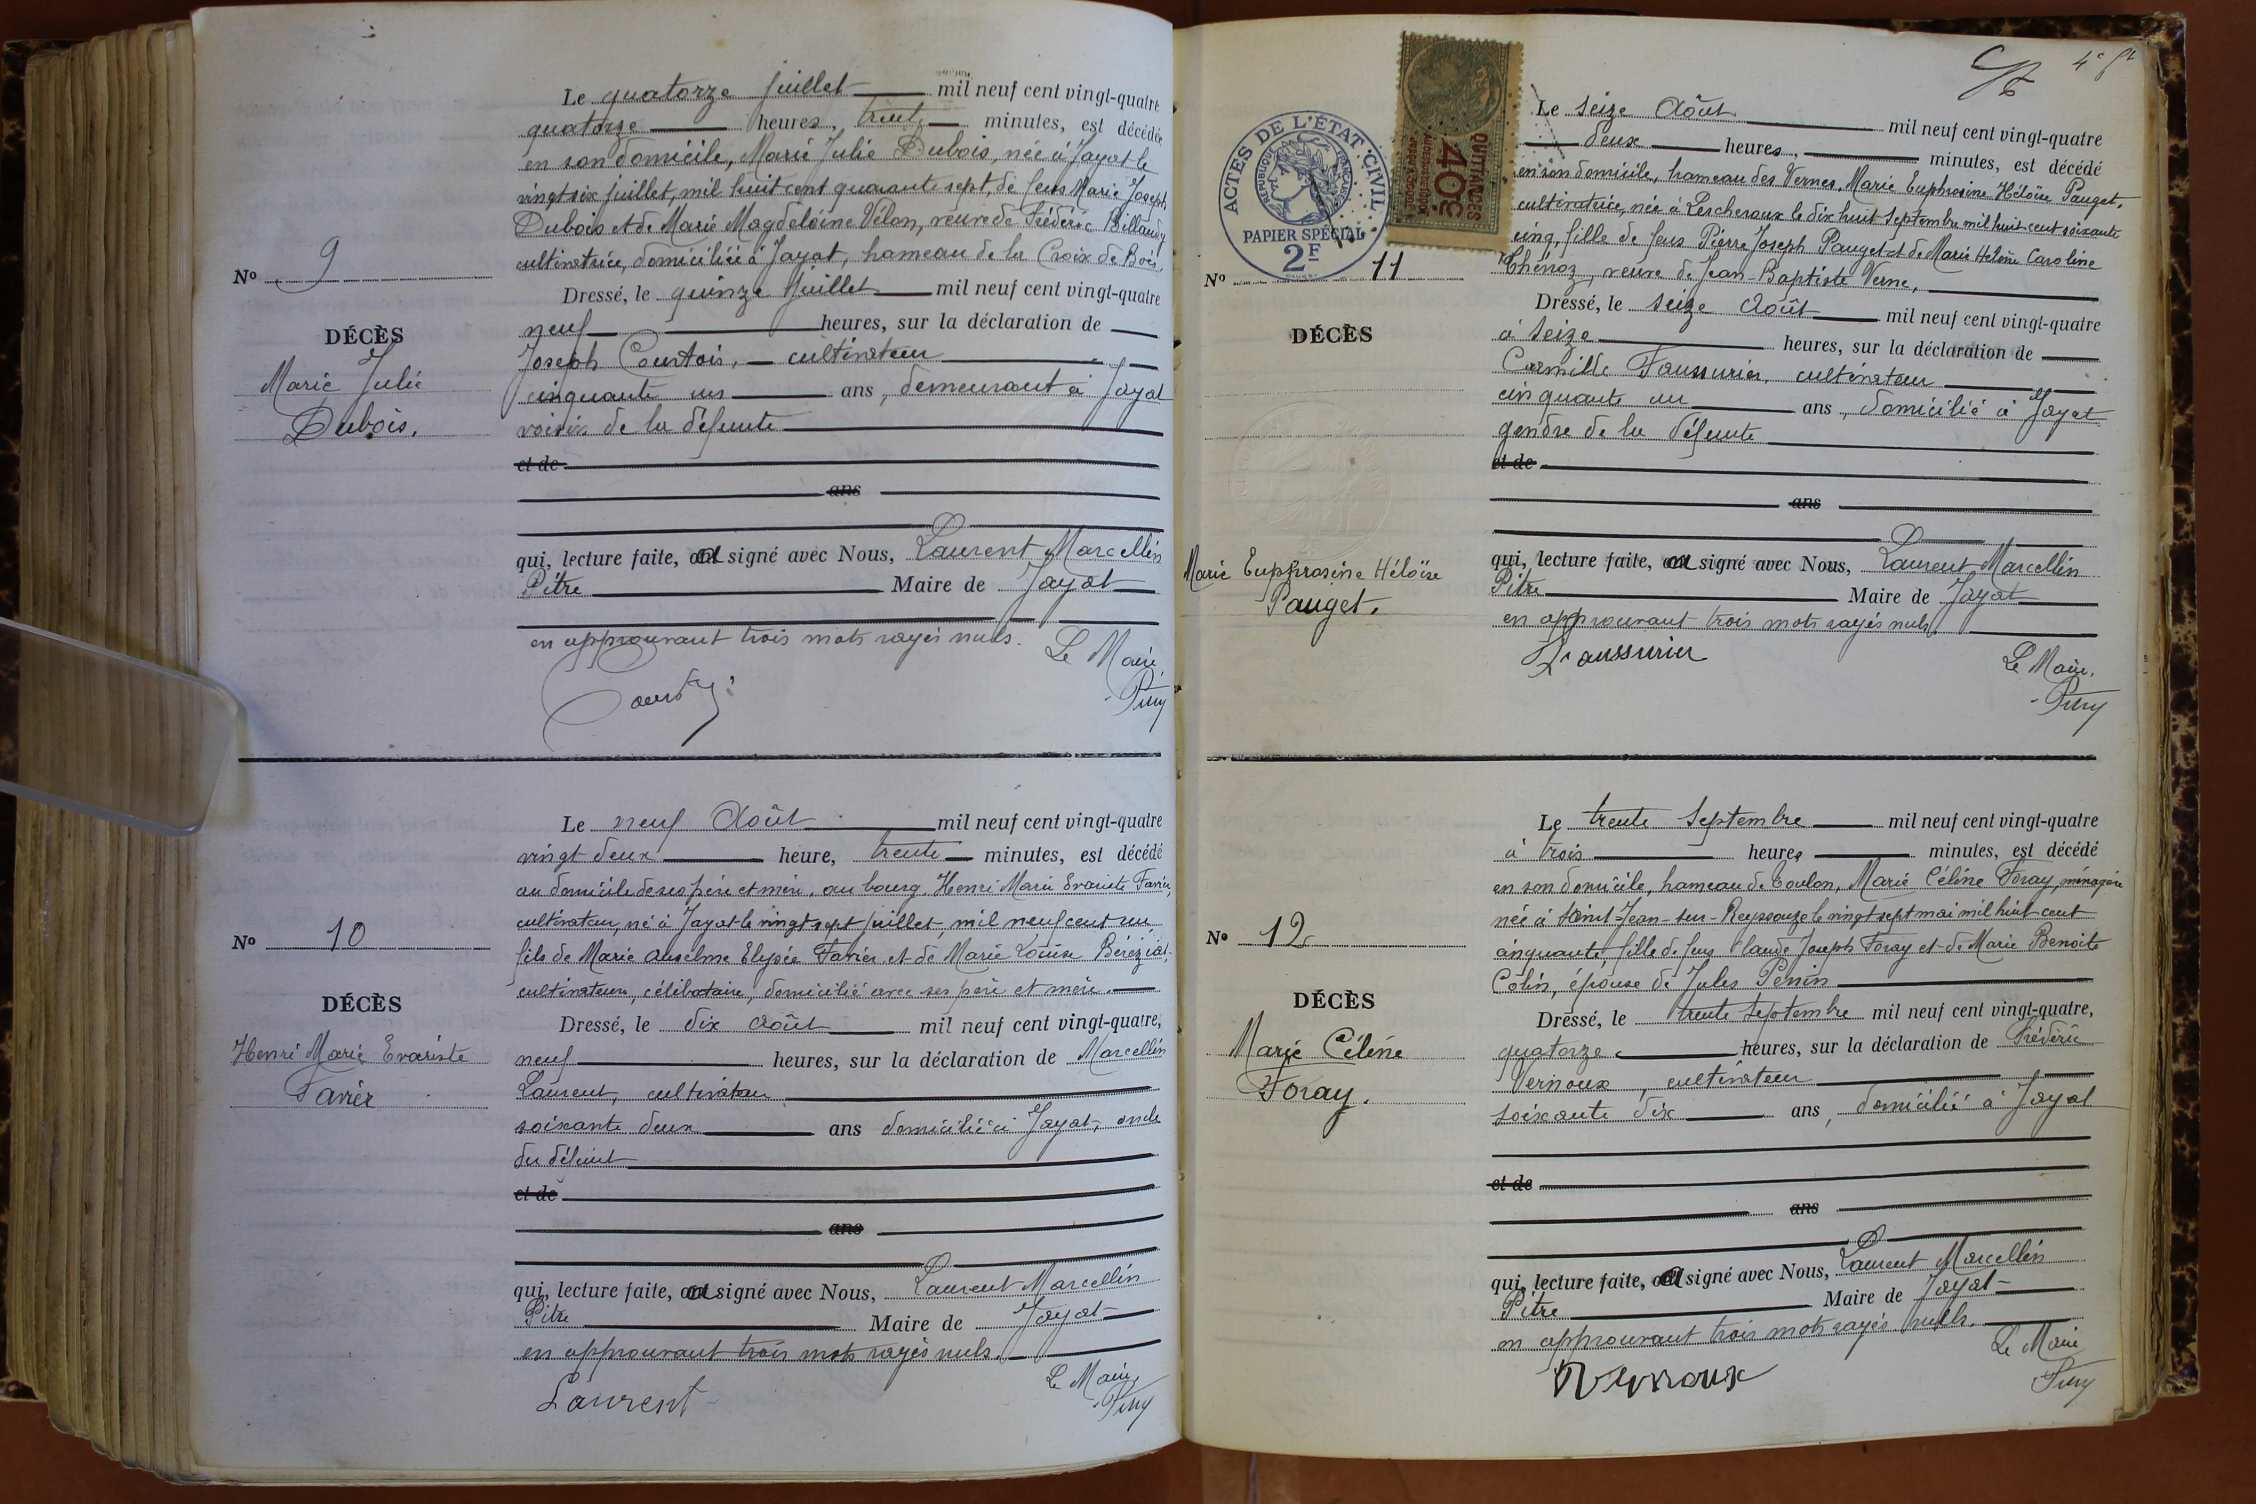 Le quatorze Juillet mil neuf cent vingt-quatre
quatorze heures, trente minutes, est décédée
en son domicile, Marie Julie Dubois, née à Jayat le
vingt six juillet, mil huit cent quarante sept, de feus Marie Joseph
Dubois et de Marie Magdeleine Vélon, veuve de Frédéric Billaudy
cultivatrice, domiciliée à Jayat, hameau de la Croix de Bois.
Nº 9
Dressé, le quinze Juillet mil neuf cent vingt-quatre
neuf heures, sur la déclaration de
DÉCÈS
Joseph Courtois, cultivateur
Marie Julie
cinquante uns ans, demeurant à Jayat
Dubois.
voisin de la défunte
et de
ans
qui, lecture faite, a signé avec Nous, Laurent Marcellin
Pitre Maire de Jayat
en approuvant trois mots rayés nuls.
Le Maire,
Le neuf Août mil neuf cent vingt-quatre
vingt deux heure, trente minutes, est décédé
au domicile de ses père et mère, au bourg, Henri Marie Evariste Favier,
cultivateur, né à Jayat le vingt sept juillet mil neuf cent un
Nº 10
fils de Marie Anselme Elysée Favier et de Marie Louise Béréziat,
cultivateurs, célibataire, domicilié avec ses père et mère.
DÉCÈS
Dressé, le dix Août mil neuf cent vingt-quatre,
Henri Marie Evariste
neuf heures, sur la déclaration de Marcellin
Favier
Laurent, cultivateur
soixante deux ans domicilié à Jayat, oncle
du défunt
et de
ans
qui, lecture faite, a signé avec Nous, Laurent Marcellin
Pitre Maire de Jayat
en approuvant trois mots rayés nuls.
Le Maire,
Laurent
4e ft
ACTES DE L'ÉTAT CIVIL
RÉPUBLIQUE FRANÇAISE
PAPIER SPÉCIAL
2F
QUITTANCES
40c
Le seize Août mil neuf cent vingt-quatre
deux heures, minutes, est décédé
en son domicile, hameau des Vernes, Marie Euphrosine Héloïse Pauget,
cultivatrice, née à Lescheroux le dix huit Septembre mil huit cent soixante
cinq, fille de feus Pierre Joseph Pauget et de Marie Hélène Caroline
Nº 11
Thénoz, veuve de Jean-Baptiste Verne,
Dressé, le seize Août mil neuf cent vingt-quatre
DÉCÈS
à seize heures, sur la déclaration de
Camille Faussurier, cultivateur
cinquante un ans, domicilié à Jayat
gendre de la défunte
et de
ans
Marie Euphrosine Héloïse
Pauget.
qui, lecture faite, a signé avec Nous, Laurent Marcellin
Pitre Maire de Jayat
en approuvant trois mots rayés nuls.
Faussurier
Le Maire,
Le trente Septembre mil neuf cent vingt-quatre
à trois heures minutes, est décédé
en son domicile, hameau de Coulon, Marie Céline Foray, ménagère
née à Saint-Jean-sur-Reyssouze le vingt sept mai mil huit cent
Nº 12
cinquante, fille de feus Claude Joseph Foray et de Marie Benoite
Colin, épouse de Jules Penin
DÉCÈS
Dressé, le trente Septembre mil neuf cent vingt-quatre,
Marie Céline
quatorze heures, sur la déclaration de Frédéric
Foray.
Vernoux, cultivateur
soixante dix ans, domicilié à Jayat
et de
ans
qui, lecture faite, a signé avec Nous, Laurent Marcellin
Pitre Maire de Jayat
en approuvant trois mots rayés nuls.
Le Maire
Vernoux